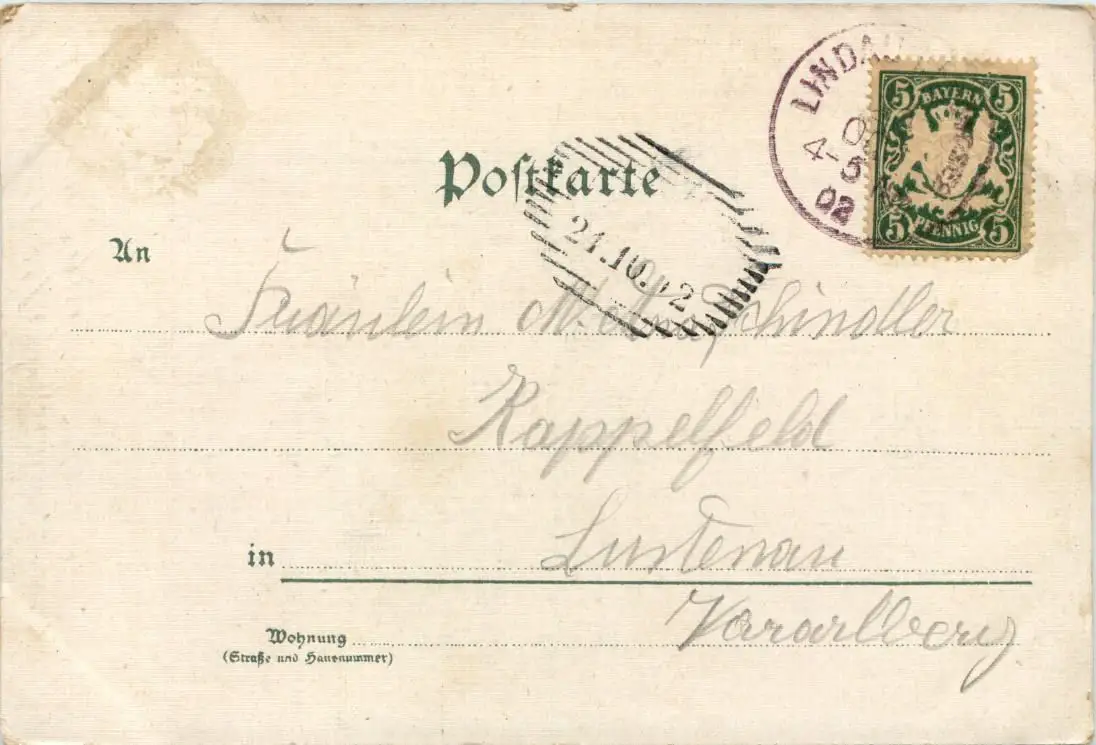 LINDAU
4-5
02
5 BAYERN 5
5 PFENNIG 5
Postkarte
21.10.02
An
Fräulein Schindler
Rappelfeld
in Lustenau
Vorarlberg
Wohnung
(Straße und Hausnummer)